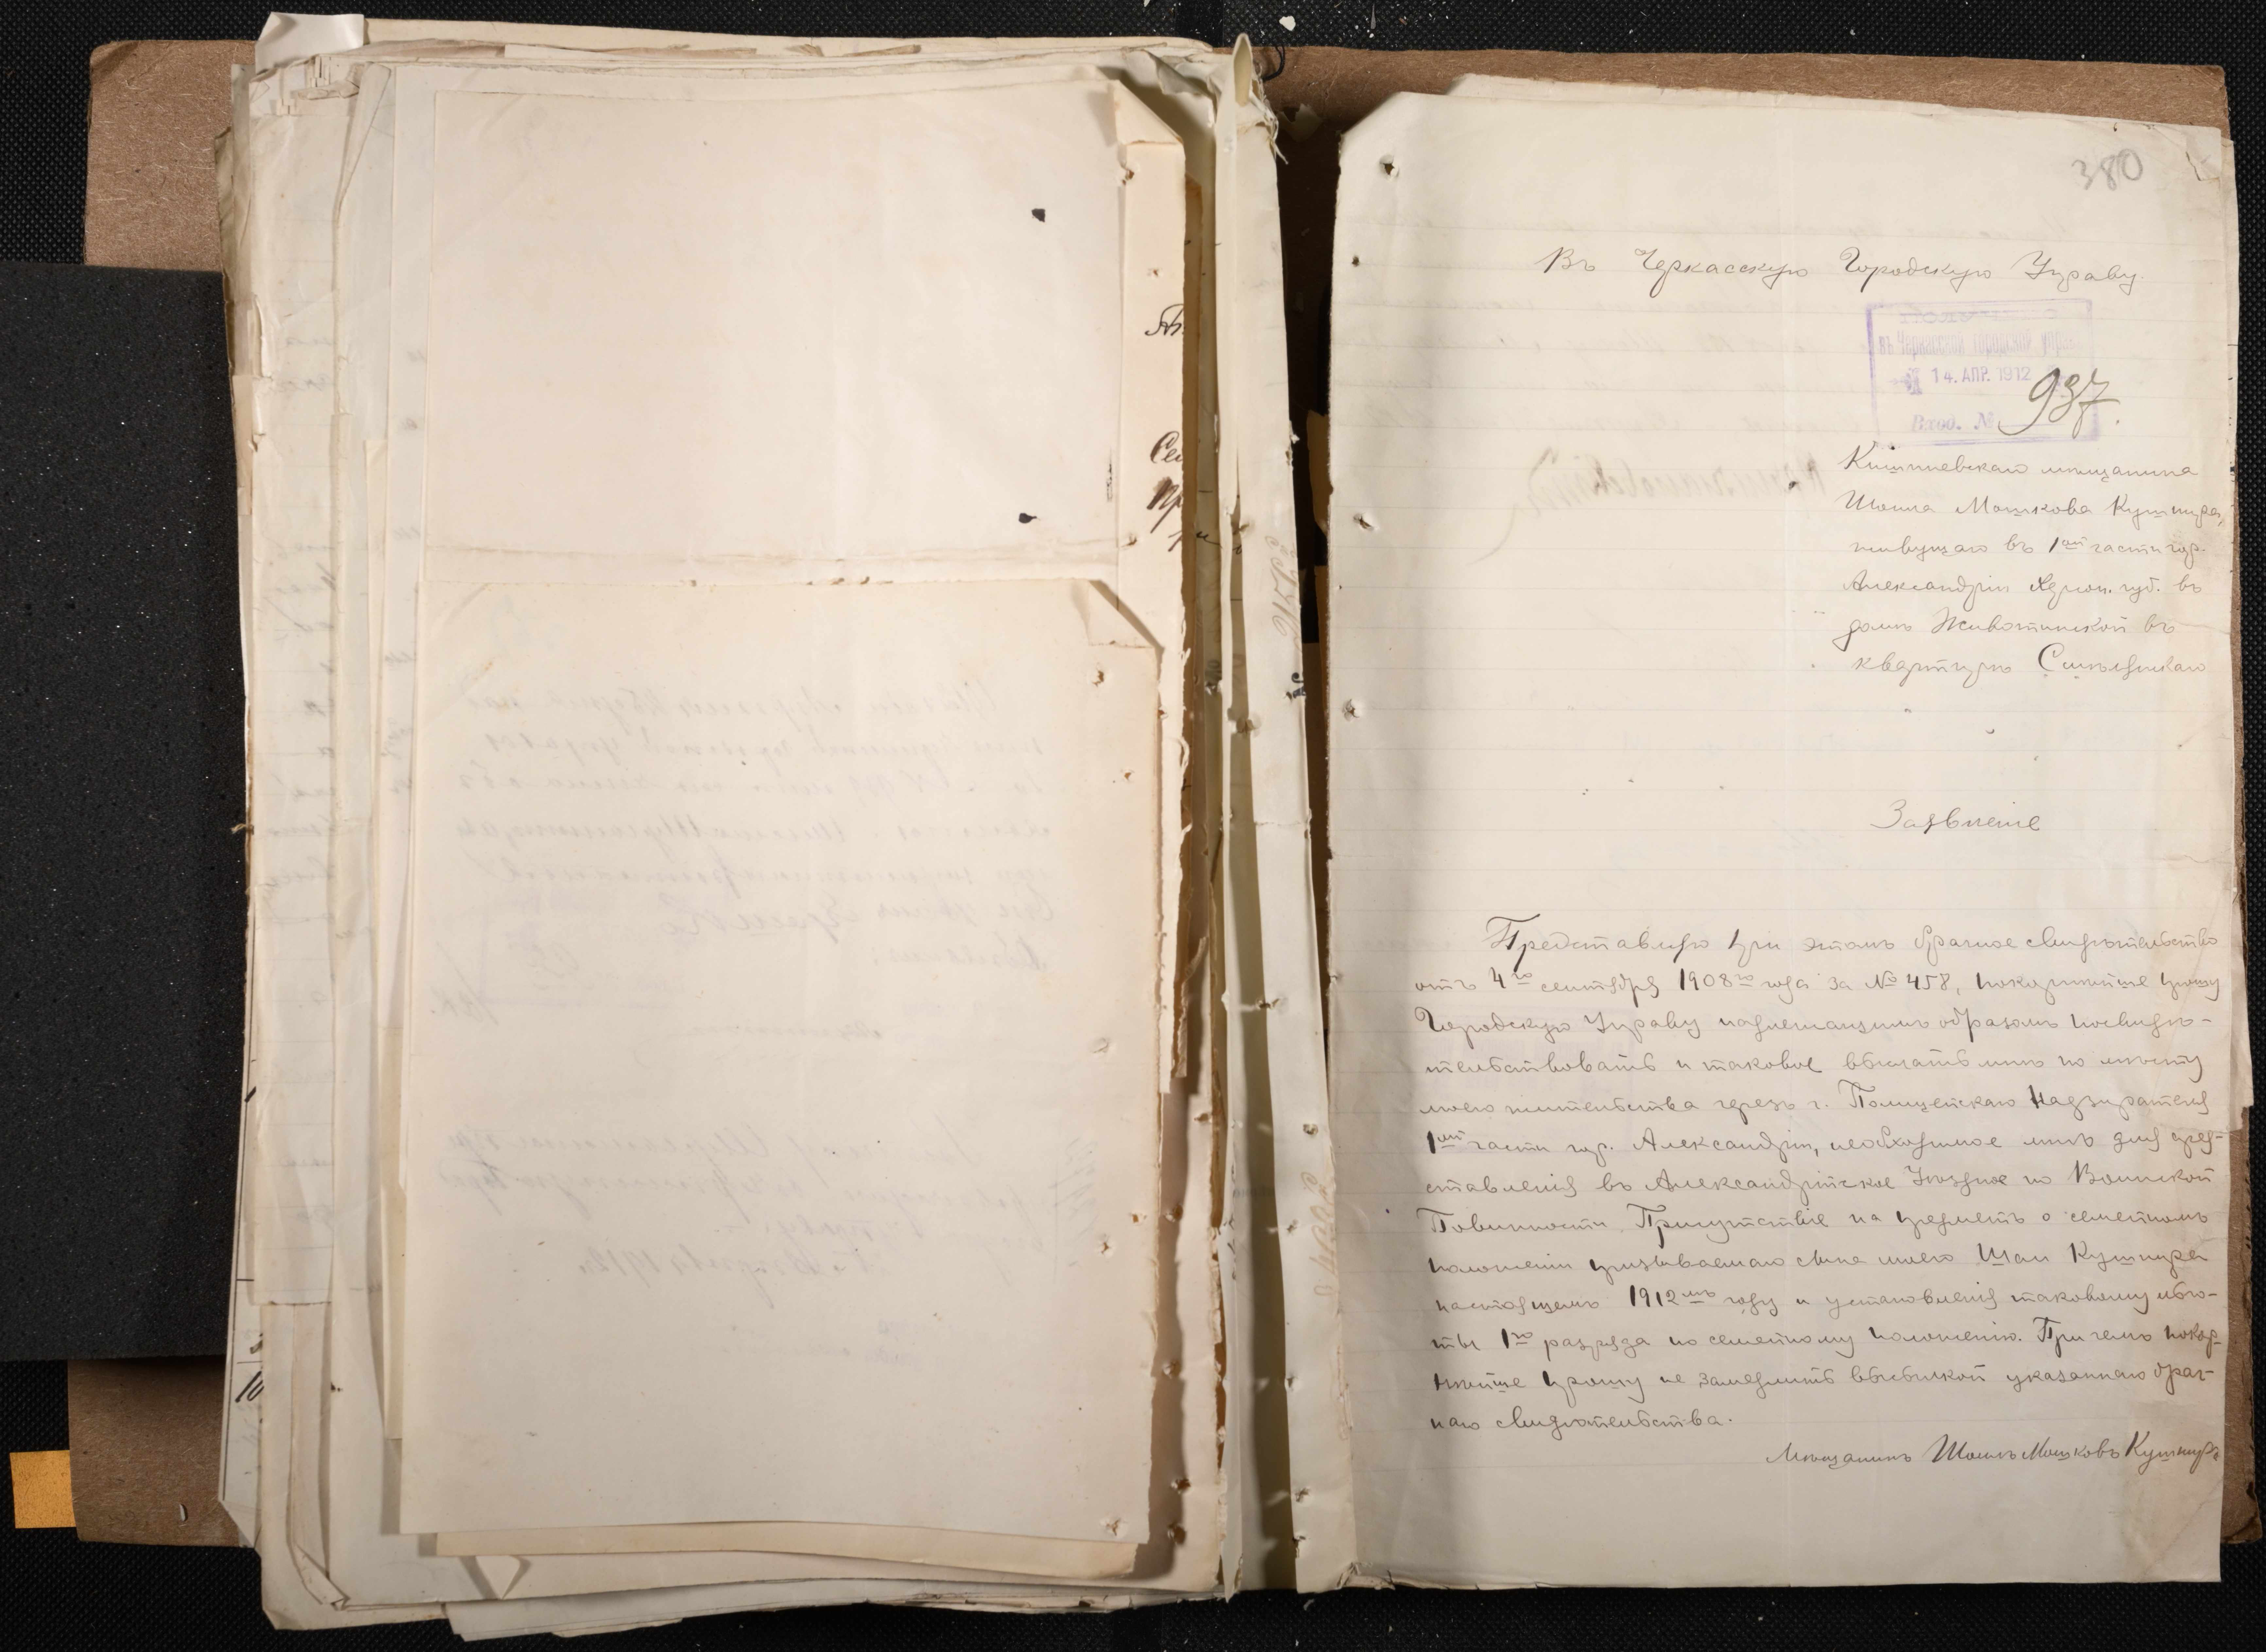 380
Въ Черкасскую Городскую Управу.
въ Черкасской городской управ
14. АПР. 1912
Вход. № 937.
Кишиневскаго мѣщанина
Шоила Мошкова Кушнира,
живущаго въ 1ой части гор.
Александріи Херсон. губ. въ
домѣ Животинской въ
квартирѣ
Заявленіе
Представляю при этомъ брачное свидѣтельство
отъ 4го сентября 1908го года за № 458, покорнѣйше прошу
Городскую Управу надлежащимъ образомъ посвидѣ-
тельствовать и таковое выслать мнѣ по мѣсту
моего жительства черезъ г. Полицейскаго Надзирателя
1ой части гор. Александріи, необходимое мнѣ для пред-
ставленія въ Александрійское Уѣздное по Воинской
Повинности Присутствіе на предметъ о семейномъ
положеніи призываемаго сына моего Шаи Кушнира
настоящемъ 1912мъ году и установленія таковому льго-
ты 1го разряда по семейному положенію. При чемъ покор-
нѣйше прошу не замедлить высылкой указаннаго брач-
наго свидѣтельства.
Мѣщанинъ Шоилъ Мошковъ Кушниръ